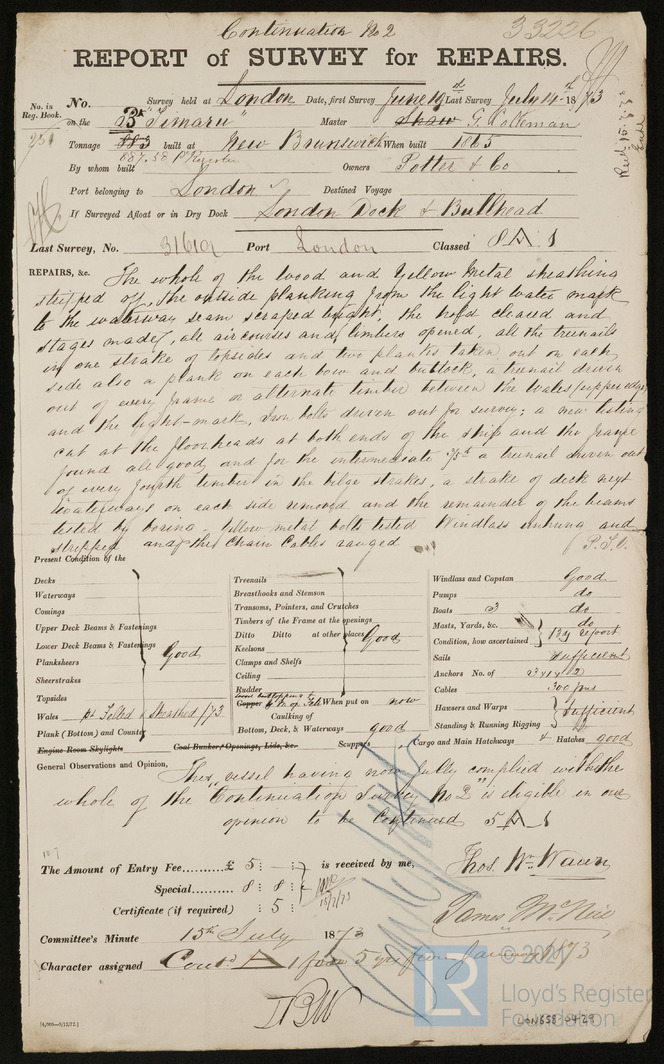 Continuation No 2
33226
REPORT of SURVEY for REPAIRS.
No. in Reg. Book.
No. Survey held at London Date, first Survey June 19th Last Survey July 14th 1873
on the Bk "Timaru" Master Shaw G. Coleman
Tonnage 883 built at New Brunswick When built 1865
887.58
By whom built Owners Potter & Co
Port belonging to London Destined Voyage
If Surveyed Afloat or in Dry Dock London Dock & Bullhead
Last Survey, No. 31619 Port London Classed 8 A 1
REPAIRS, &c. The whole of the wood and Yellow Metal sheathing
stripped off, the outside planking from the light water mark
to the waterway seam scraped bright, the hold cleared and
stages made, all aircourses and limbers opened, all the treenails
in one strake of topsides and two planks taken out on each
side also a plank on each bow and buttock, a treenail driven
out of every frame or alternate timber between the Wales (upper edge)
and the light-mark, Iron bolts driven out for survey; a new listing
cut at the floorheads at both ends of the ship and the frame
found all good, and for the intermediate 3/5th a treenail driven out
of every fourth timber in the bilge strakes, a strake of deck next
waterways on each side removed and the remainder of the beams
tested by boring. Yellow metal bolts tested Windlass unhung and
stripped and the Chain Cables ranged P.T.O.
Present Condition of the
Decks
Waterways
Comings
Upper Deck Beams & Fastenings
Lower Deck Beams & Fastenings
Planksheers
Good
Sheerstrakes
Topsides
Wales pt Felted & Sheathed /73
Plank (Bottom) and Counter
Engine Room Skylights
Coal Bunker Openings, Lids, &c.
Treenails
Breasthooks and Stemson
Transoms, Pointers, and Crutches
Timbers of the Frame at the openings
Ditto Ditto at other places
Good
Keelsons
Clamps and Shelfs
Ceiling
Rudder
Copper When put on now
Caulking of
Bottom, Deck, & Waterways good
Scuppers
Windlass and Capstan Good
Pumps do
Boats 3 do
Masts, Yards, &c. do
Condition, how ascertained By report
Sails sufficient
Anchors No. of 3 x 1 x 2
Cables 300 fms
Hawsers and Warps
Standing & Running Rigging
Sufficient
Cargo and Main Hatchways & Hatches good
General Observations and Opinion, This vessel having now fully complied with the
whole of the "Continuation Survey No 2" is eligible in our
opinion to be Continued 5 A 1
The Amount of Entry Fee......... £ 5 : - : is received by me,
Special......... 8 : 8 :
Certificate (if required) : 5 :
15/7/73
Thos. Wm. Wawn
James McNeil
Committee's Minute 15th July 1873
Character assigned Contd A 1 for 5 yrs from January 1873
© 2021
LR
Lloyd's Register
Foundation
LON658-0429
[4,000—9/12/72.]